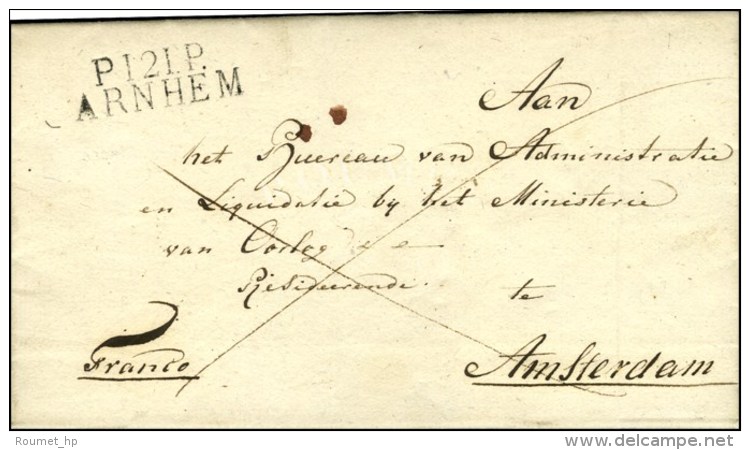 P.121.P.
ARNHEM
Aan
het Buereau van Administratie
en Liquidatie by het Ministerie
van Oorlog
Resideerende
te
Franco
Amsterdam
Roumet_hp
delcampe.net